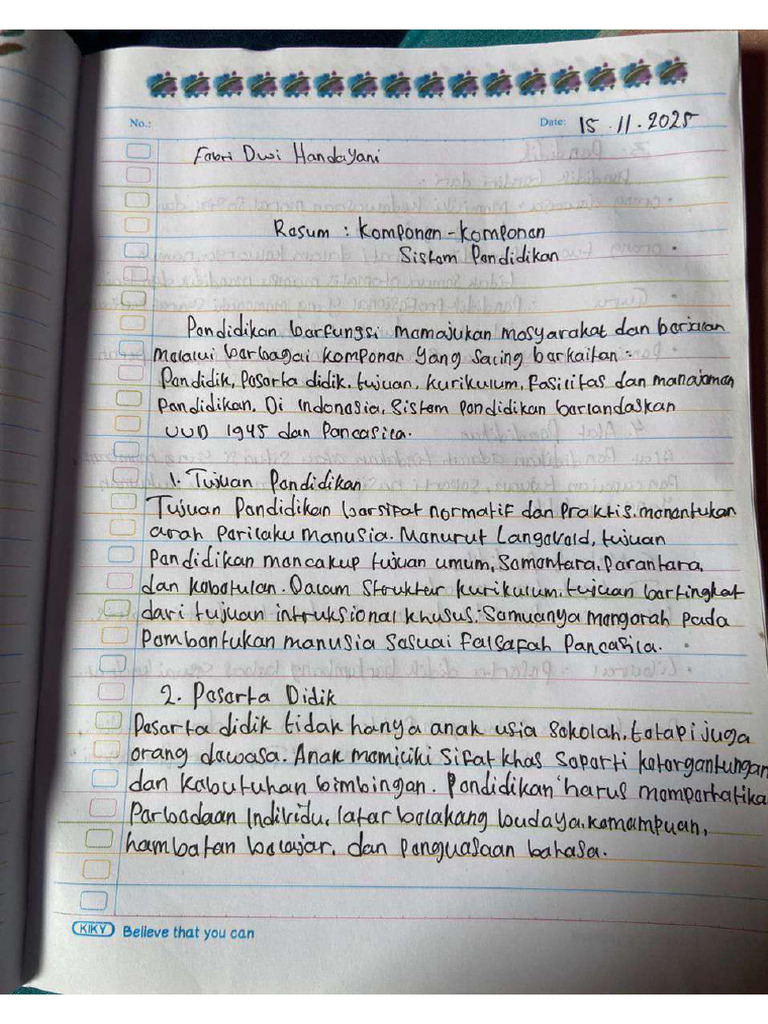 No.:
Date: 15.11.2025
Febri Dwi Handayani
Resum : Komponen-Komponen
Sistem Pendidikan
Pendidikan berfungsi memajukan masyarakat dan berjalan
melalui berbagai komponen yang saling berkaitan :
Pendidik, Peserta didik, tujuan, kurikulum, fasilitas dan manajemen
Pendidikan. Di Indonesia, sistem pendidikan berlandaskan
UUD 1945 dan Pancasila.
1. Tujuan Pendidikan
Tujuan Pendidikan bersifat normatif dan Praktis, menentukan
arah Perilaku manusia. Menurut Langeveld, tujuan
Pendidikan mencakup tujuan umum, Sementara, Perantara,
dan kebetulan. Dalam Struktur kurikulum, tujuan bertingkat
dari tujuan intruksional khusus. Semuanya mengarah Pada
Pembentukan manusia Sesuai falsafah Pancasila.
2. Peserta Didik
Peserta didik tidak hanya anak usia Sekolah, tetapi juga
orang dewasa. Anak memiliki Sifat khas Seperti ketergantungan
dan kebutuhan bimbingan. Pendidikan harus memperhatika
Perbedaan Individu, latar belakang budaya, kemampuan,
hambatan belajar, dan Penguasaan bahasa.
KIKY Believe that you can